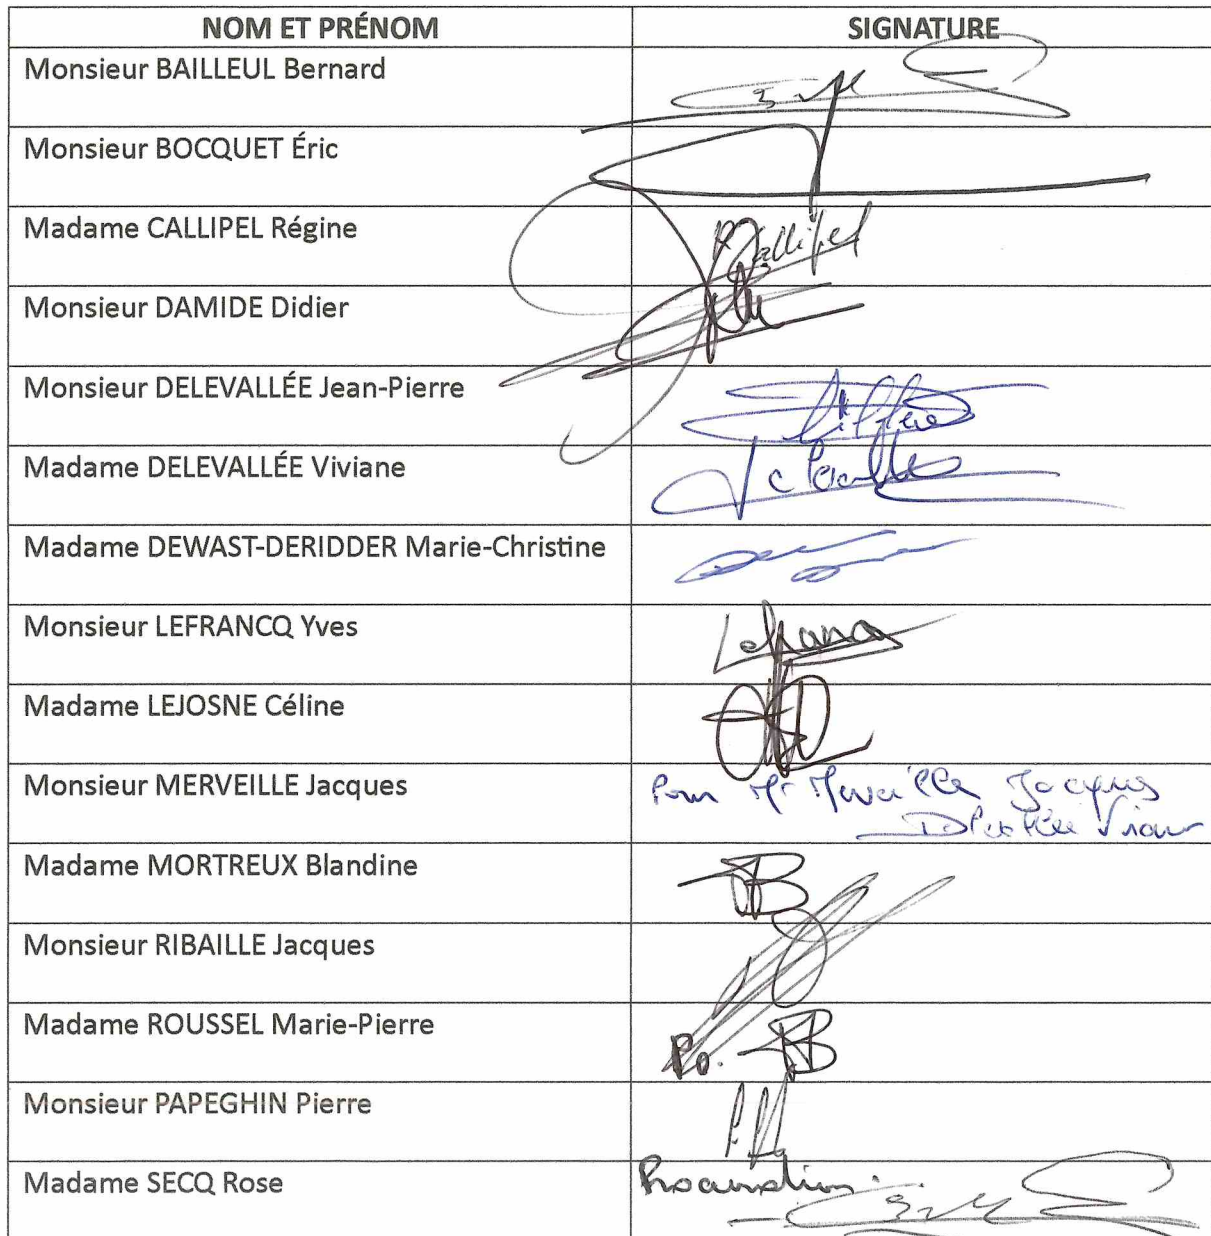 NOM ET PRÉNOM SIGNATURE
Monsieur BAILLEUL Bernard
Monsieur BOCQUET Éric
Madame CALLIPEL Régine Callipel
Monsieur DAMIDE Didier
Monsieur DELEVALLÉE Jean-Pierre
Madame DELEVALLÉE Viviane
Madame DEWAST-DERIDDER Marie-Christine
Monsieur LEFRANCQ Yves Lefrancq
Madame LEJOSNE Céline
Monsieur MERVEILLE Jacques Pour Mr Merveille Jacques
Madame MORTREUX Blandine
Monsieur RIBAILLE Jacques
Madame ROUSSEL Marie-Pierre Po.
Monsieur PAPEGHIN Pierre
Madame SECQ Rose Procuration.